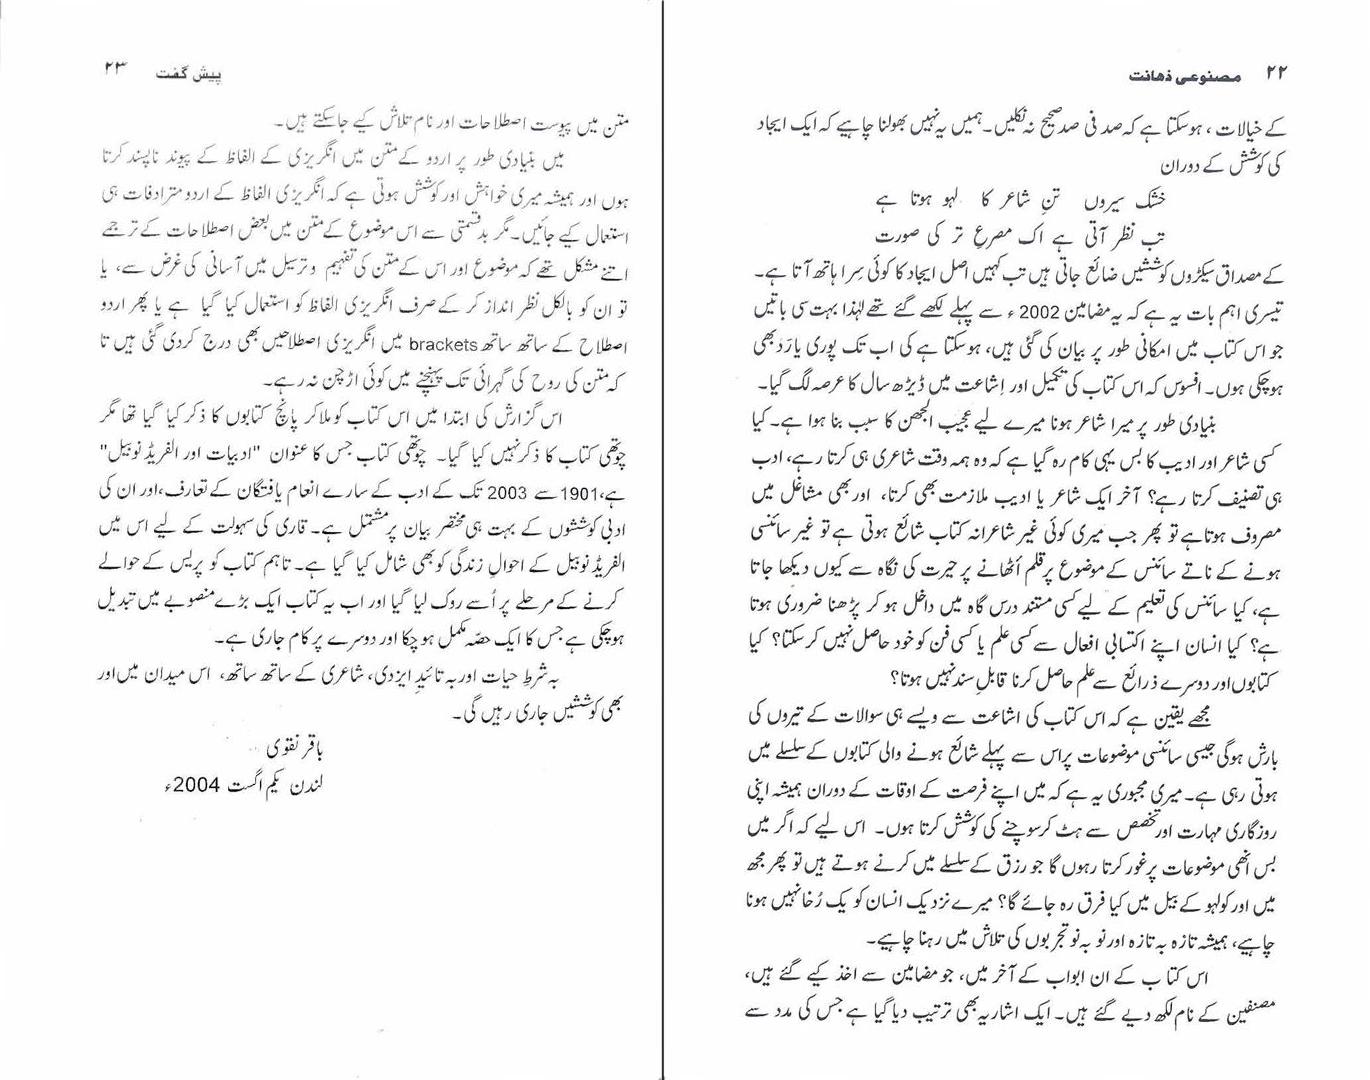 ۲۲ مصنوعی ذھانت
کے خیالات ، ہوسکتا ہے کہ صد فی صد صحیح نہ نکلیں۔ ہمیں یہ نہیں بھولنا چاہیے کہ ایک ایجاد
کی کوشش کے دوران
خشک سیروں تنِ شاعر کا لہو ہوتا ہے
تب نظر آتی ہے اک مصرعِ تر کی صورت
کے مصداق سیکڑوں کوششیں ضائع جاتی ہیں تب کہیں اصل ایجاد کا کوئی سِرا ہاتھ آتا ہے۔
تیسری اہم بات یہ ہے کہ یہ مضامین 2002ء سے پہلے لکھے گئے تھے لہٰذا بہت سی باتیں
جو اس کتاب میں امکانی طور پر بیان کی گئی ہیں، ہوسکتا ہے کی اب تک پوری یا رَد بھی
ہوچکی ہوں۔ افسوس کہ اس کتاب کی تکمیل اور اِشاعت میں ڈیڑھ سال کا عرصہ لگ گیا۔
بنیادی طور پر میرا شاعر ہونا میرے لیے عجیب اُلجھن کا سبب بنا ہوا ہے۔ کیا
کسی شاعر اور ادیب کا بس یہی کام رہ گیا ہے کہ وہ ہمہ وقت شاعری ہی کرتا رہے، ادب
ہی تصنیف کرتا رہے؟ آخر ایک شاعر یا ادیب ملازمت بھی کرتا، اور بھی مشاغل میں
مصروف ہوتا ہے تو پھر جب میری کوئی غیر شاعرانہ کتاب شائع ہوتی ہے تو غیر سائنسی
ہونے کے ناتے سائنس کے موضوع پر قلم اُٹھانے پر حیرت کی نگاہ سے کیوں دیکھا جاتا
ہے، کیا سائنس کی تعلیم کے لیے کسی مستند درس گاہ میں داخل ہو کر پڑھنا ضروری ہوتا
ہے؟ کیا انسان اپنے اکتسابی افعال سے کسی علم یا کسی فن کو خود حاصل نہیں کرسکتا؟ کیا
کتابوں اور دوسرے ذرائع سے علم حاصل کرنا قابلِ سند نہیں ہوتا؟
مجھے یقین ہے کہ اس کتاب کی اشاعت سے ویسے ہی سوالات کے تیروں کی
بارش ہوگی جیسی سائنسی موضوعات پر اس سے پہلے شائع ہونے والی کتابوں کے سلسلے میں
ہوتی رہی ہے۔ میری مجبوری یہ ہے کہ میں اپنے فرصت کے اوقات کے دوران ہمیشہ اپنی
روزگاری مہارت اور تخصص سے ہٹ کر سوچنے کی کوشش کرتا ہوں۔ اس لیے کہ اگر میں
بس انھی موضوعات پر غور کرتا رہوں گا جو رزق کے سلسلے میں کرنے ہوتے ہیں تو پھر مجھ
میں اور کولہو کے بیل میں کیا فرق رہ جائے گا؟ میرے نزدیک انسان کو یک رُخا نہیں ہونا
چاہیے، ہمیشہ تازہ بہ تازہ اور نو بہ نو تجربوں کی تلاش میں رہنا چاہیے۔
اس کتاب کے ان ابواب کے آخر میں، جو مضامین سے اخذ کیے گئے ہیں،
مصنفین کے نام لکھ دیے گئے ہیں۔ ایک اشاریہ بھی ترتیب دیا گیا ہے جس کی مدد سے
پیش گفت ۲۳
متن میں پیوست اصطلاحات اور نام تلاش کیے جاسکتے ہیں۔
میں بنیادی طور پر اردو کے متن میں انگریزی کے الفاظ کے پیوند ناپسند کرتا
ہوں اور ہمیشہ میری خواہش اور کوشش ہوتی ہے کہ انگریزی الفاظ کے اردو مترادفات ہی
استعمال کیے جائیں۔ مگر بدقسمتی سے اس موضوع کے متن میں بعض اصطلاحات کے ترجمے
اتنے مشکل تھے کہ موضوع اور اس کے متن کی تفہیم و ترسیل میں آسانی کی غرض سے، یا
تو ان کو بالکل نظر انداز کر کے صرف انگریزی الفاظ کو استعمال کیا گیا ہے یا پھر اردو
اصطلاح کے ساتھ ساتھ brackets میں انگریزی اصطلاحیں بھی درج کردی گئی ہیں تا
کہ متن کی روح کی گہرائی تک پہنچنے میں کوئی اڑچن نہ رہے۔
اس گزارش کی ابتدا میں اس کتاب کو ملا کر پانچ کتابوں کا ذکر کیا گیا تھا مگر
چوتھی کتاب کا ذکر نہیں کیا گیا۔ چوتھی کتاب جس کا عنوان "ادبیات اور الفریڈ نوبیل"
ہے، 1901 سے 2003 تک کے ادب کے سارے انعام یافتگان کے تعارف، اور ان کی
ادبی کوششوں کے بہت ہی مختصر بیان پر مشتمل ہے۔ قاری کی سہولت کے لیے اس میں
الفریڈ نوبیل کے احوالِ زندگی کو بھی شامل کیا گیا ہے۔ تاہم کتاب کو پریس کے حوالے
کرنے کے مرحلے پر اُسے روک لیا گیا اور اب یہ کتاب ایک بڑے منصوبے میں تبدیل
ہوچکی ہے جس کا ایک حصّہ مکمل ہو چکا اور دوسرے پر کام جاری ہے۔
بہ شرطِ حیات اور بہ تائیدِ ایزدی، شاعری کے ساتھ ساتھ، اس میدان میں اور
بھی کوششیں جاری رہیں گی۔
باقر نقوی
لندن یکم اگست 2004ء